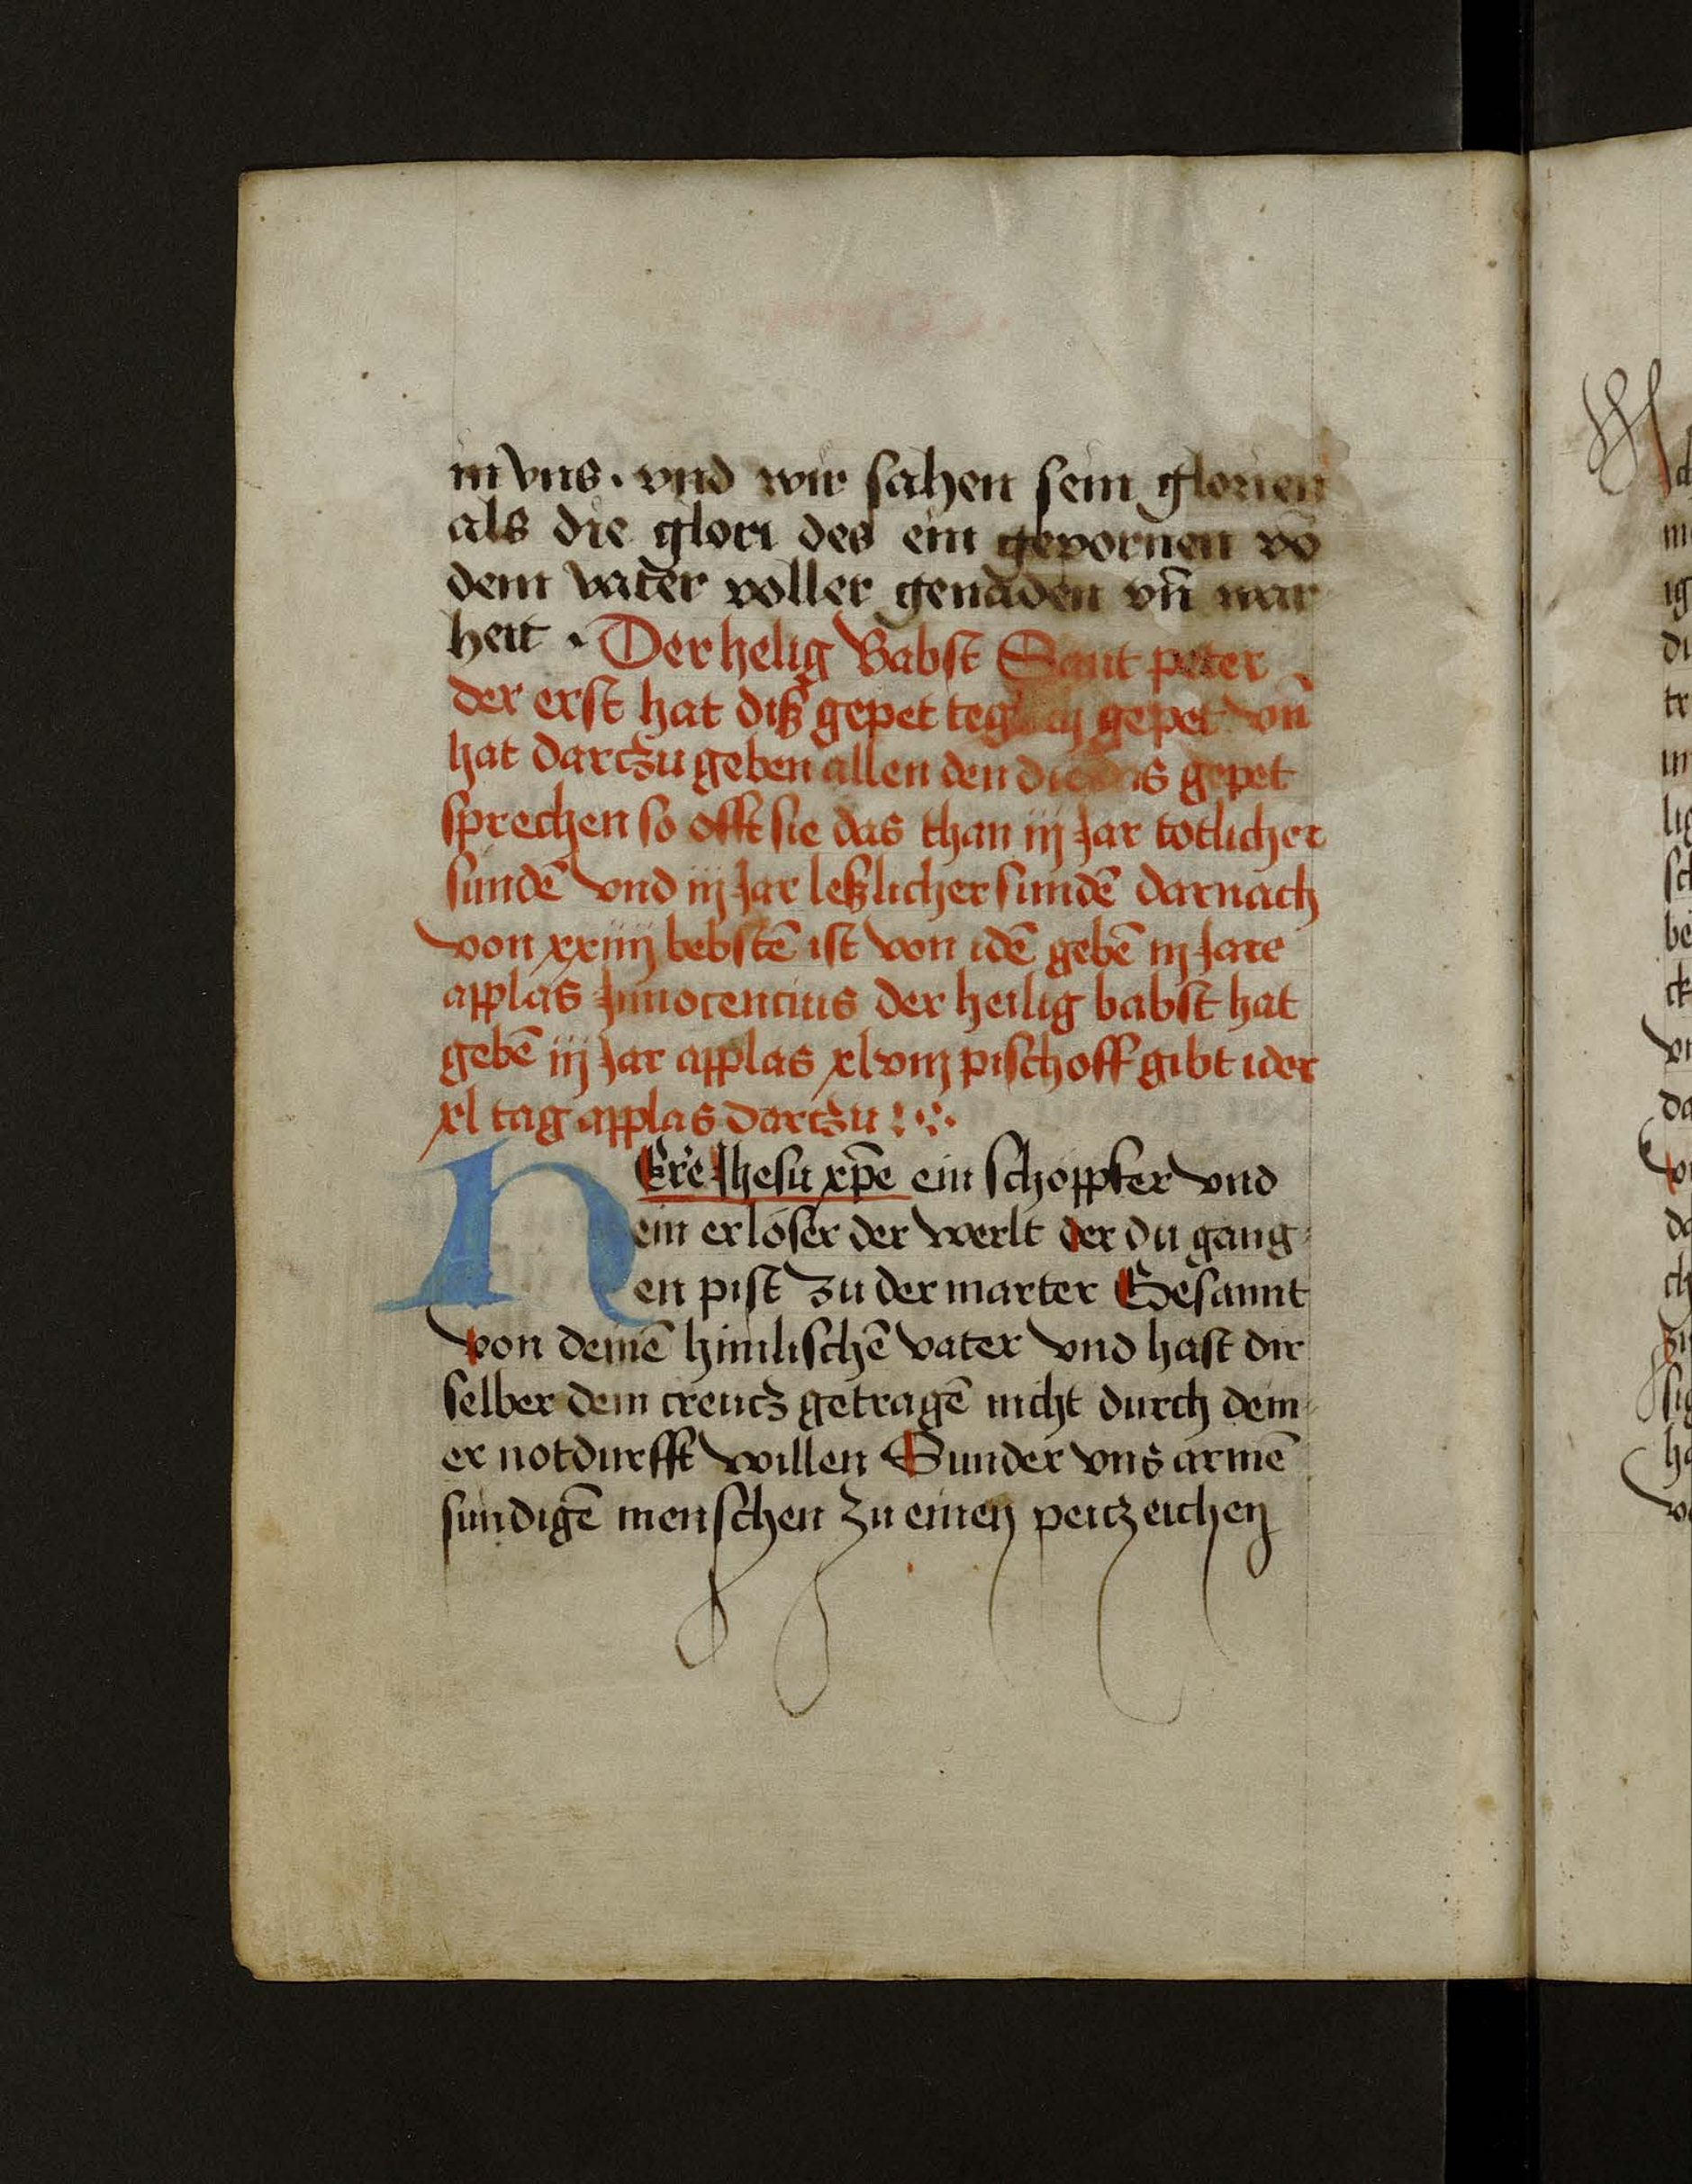 in vns · vnd wir sahen sein glorien
als die glori des ein gepornen vō
dem vater voller genaden vn̄ war
heit · Der helig Babst Sant peter
der erst hat diß gepet gepet vnn̄
hat dartzu geben allen den die gepet
sprechen so offt sie das than iij Jar totlicher
sundē vnd iij Jar leßlicher sundē darnach
von xxiiij bebstē ist von idē gebē iij Jare
applas Innocencius der heilig babst hat
gebē iij Jar applas xlviij pischoff gibt ider
xl tag applas dartzu : ·:·
HEre Jhesu xp̄e ein schoppfer vnd
ein erlöser der werlt der du gang
en pist zu der marter Gesannt
von deinē himlischē vater vnd hast dir
selber dein creutz getragē nicht durch dein
er notdurfft willen Sunder vns armē
sundigē menschen zu einen peitzeichen